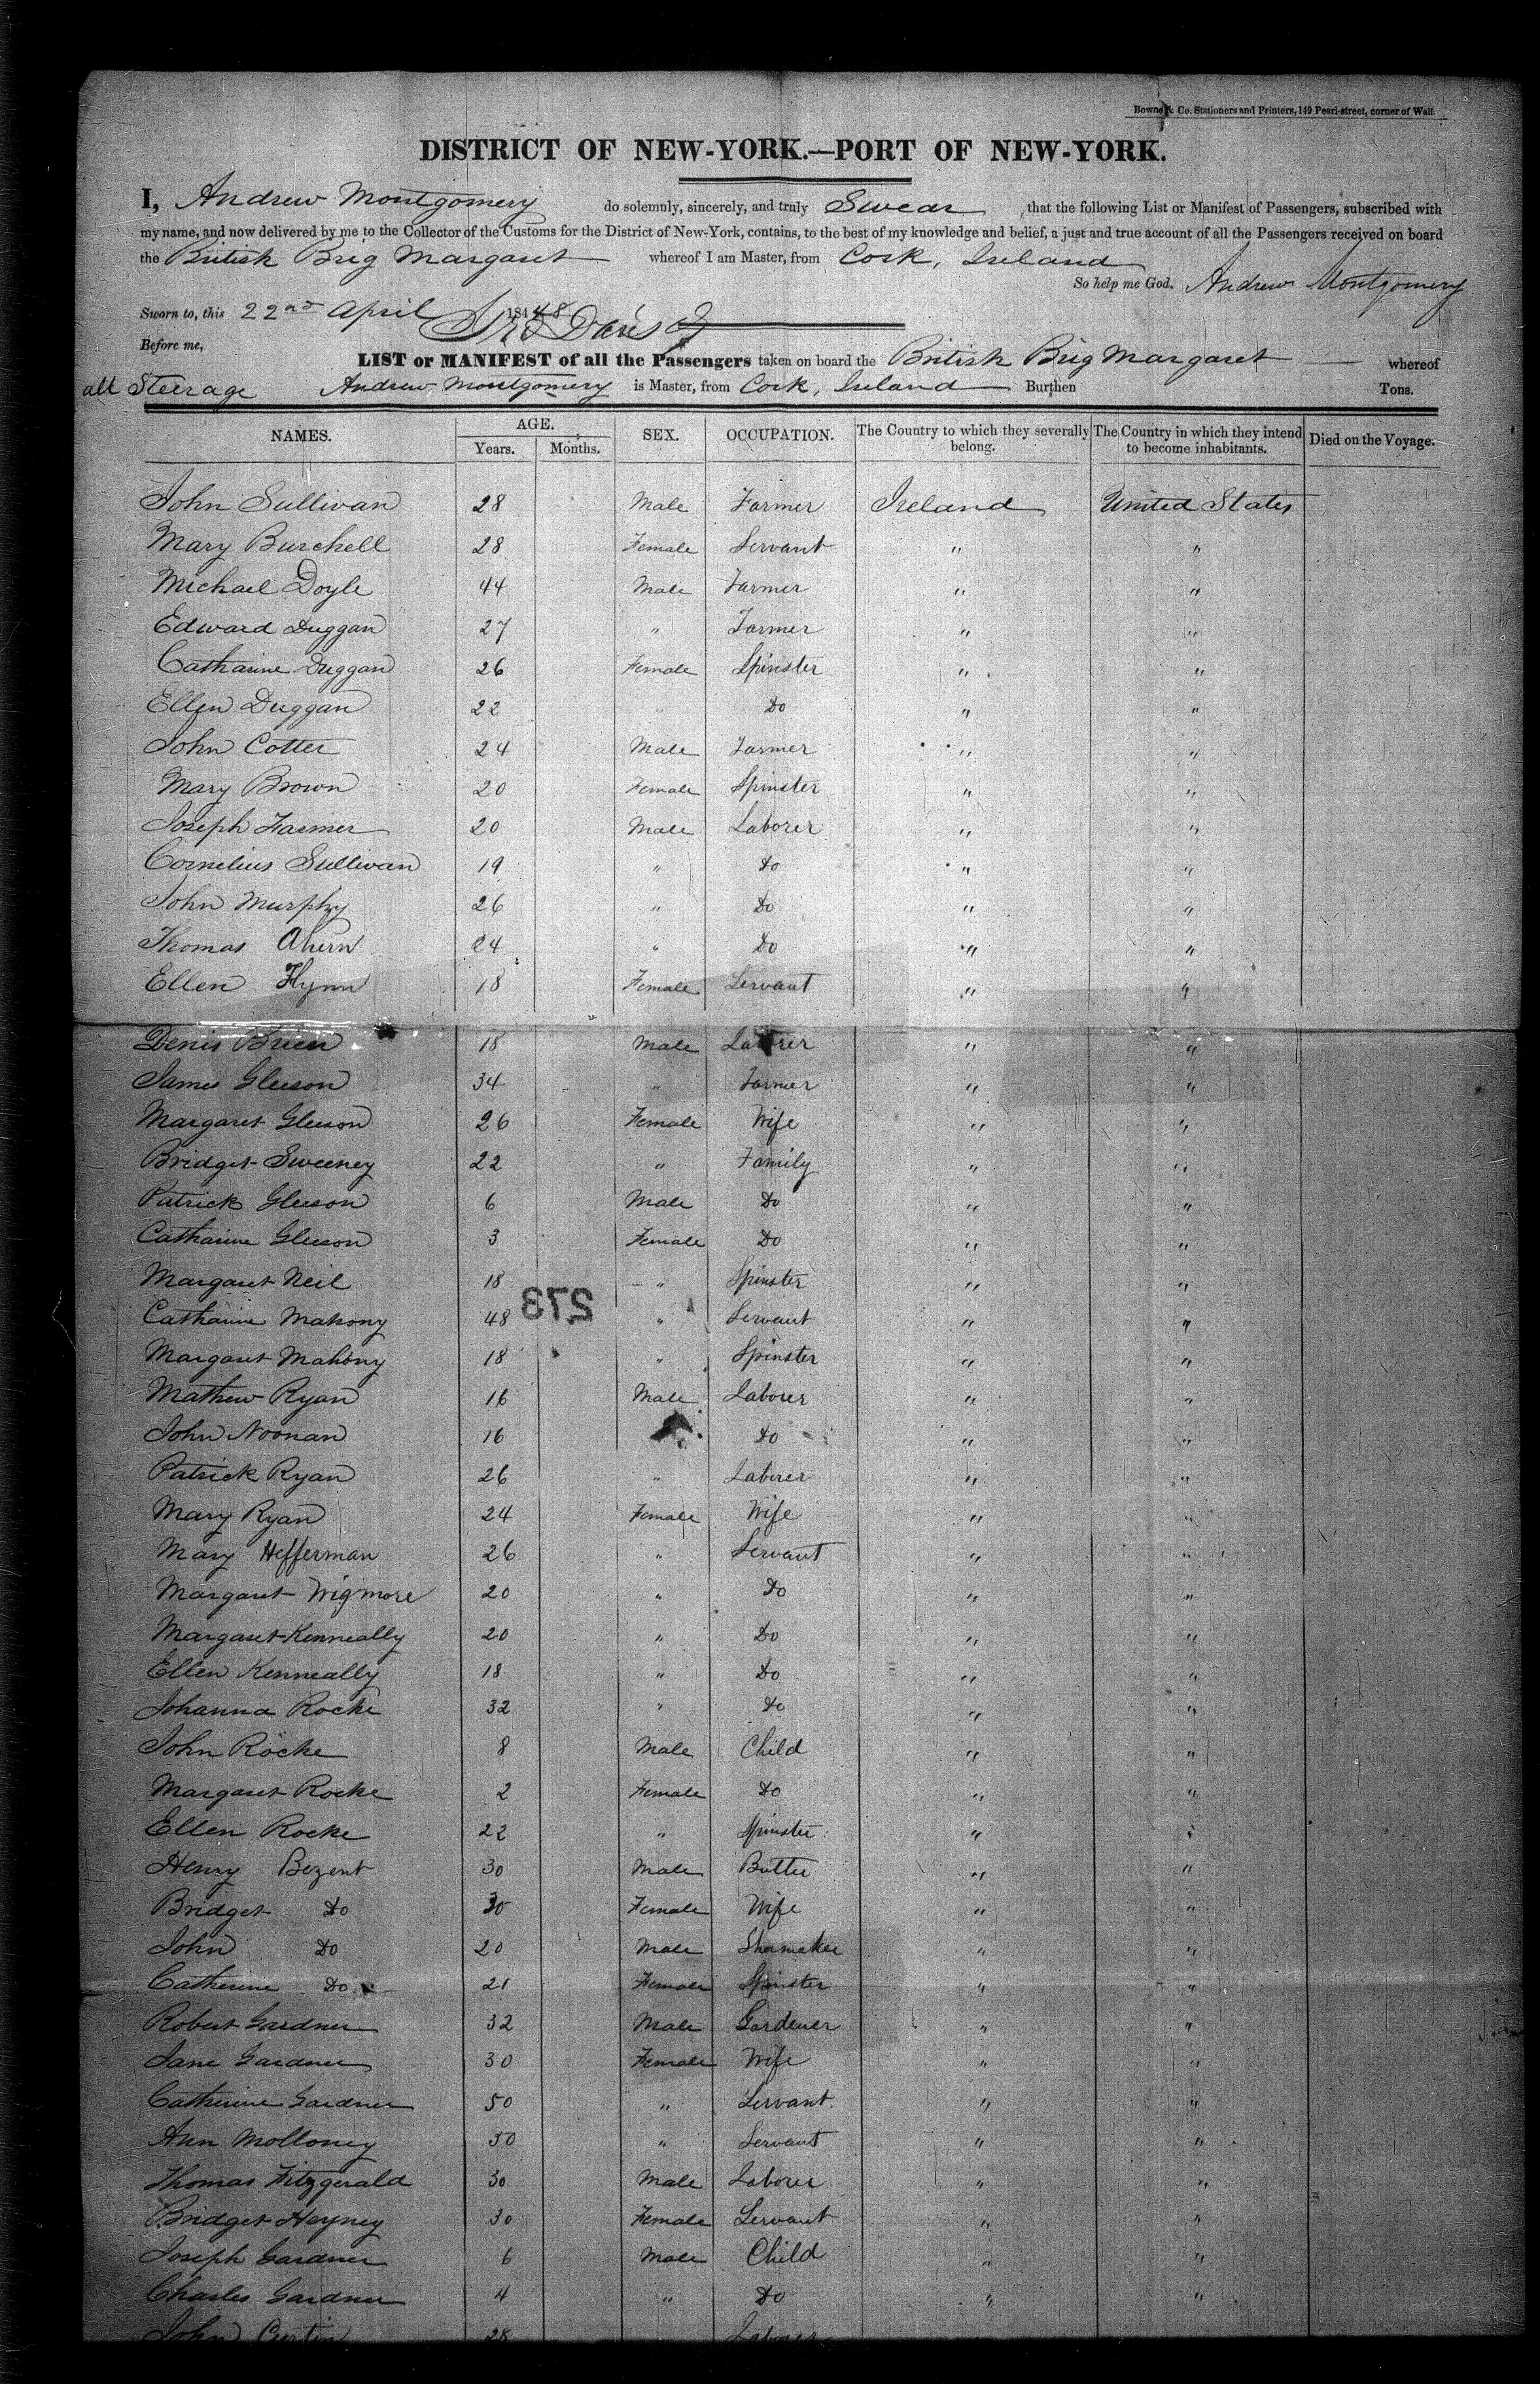 Bowne & Co. Stationers and Printers, 149 Pearl-street, corner of Wall.
DISTRICT OF NEW-YORK.—PORT OF NEW-YORK.
I, Andrew Montgomery do solemnly, sincerely, and truly Swear that the following List or Manifest of Passengers, subscribed with
my name, and now delivered by me to the Collector of the Customs for the District of New-York, contains, to the best of my knowledge and belief, a just and true account of all the Passengers received on board
the British Brig Margaret whereof I am Master, from Cork, Ireland
So help me God. Andrew Montgomery
Sworn to, this 22nd April 184 48
Before me, Davis
LIST or MANIFEST of all the Passengers taken on board the British Brig Margaret whereof
all Steerage Andrew Montgomery is Master, from Cork, Ireland Burthen Tons.
NAMES. AGE. Years. Months. SEX. OCCUPATION. The Country to which they severally belong. The Country in which they intend to become inhabitants. Died on the Voyage.
John Sullivan 28 Male Farmer Ireland United States
Mary Burchell 28 Female Servant " "
Michael Doyle 44 Male Farmer " "
Edward Duggan 27 " Farmer " "
Catharine Duggan 26 Female Spinster " "
Ellen Duggan 22 " Do " "
John Cotter 24 Male Farmer " "
Mary Brown 20 Female Spinster " "
Joseph Farmer 20 Male Laborer " "
Cornelius Sullivan 19 " Do " "
John Murphy 26 " Do " "
Thomas Ahern 24 " Do " "
Ellen Flynn 18 Female Servant " "
Denis Brien 18 Male Laborer " "
James Gleeson 34 " Farmer " "
Margaret Gleeson 26 Female Wife " "
Bridget Sweeney 22 " Family " "
Patrick Gleeson 6 Male Do " "
Catharine Gleeson 3 Female Do " "
Margaret Neil 18 " Spinster " "
273
Catharine Mahony 48 " Servant " "
Margaret Mahony 18 " Spinster " "
Mathew Ryan 16 Male Laborer " "
John Noonan 16 Do " "
Patrick Ryan 26 " Laborer " "
Mary Ryan 24 Female Wife " "
Mary Hefferman 26 " Servant " "
Margaret Wigmore 20 " Do " "
Margaret Kenneally 20 " Do " "
Ellen Kenneally 18 " Do " "
Johanna Rocke 32 " Do " "
John Rocke 8 Male Child " "
Margaret Rocke 2 Female Do " "
Ellen Rocke 22 " Spinster " "
Henry Bezent 30 Male " "
Bridget Do 30 Female Wife " "
John Do 20 Male Shoemaker " "
Catherine Do 21 Female Spinster " "
Robert Gardner 32 Male Gardener " "
Jane Gardner 30 Female Wife " "
Catherine Gardner 50 " Servant " "
Ann Molloney 50 " Servant " "
Thomas Fitzgerald 30 Male Laborer " "
Bridget Heyney 30 Female Servant " "
Joseph Gardner 6 Male Child " "
Charles Gardner 4 " Do " "
John Curtin 28 Laborer